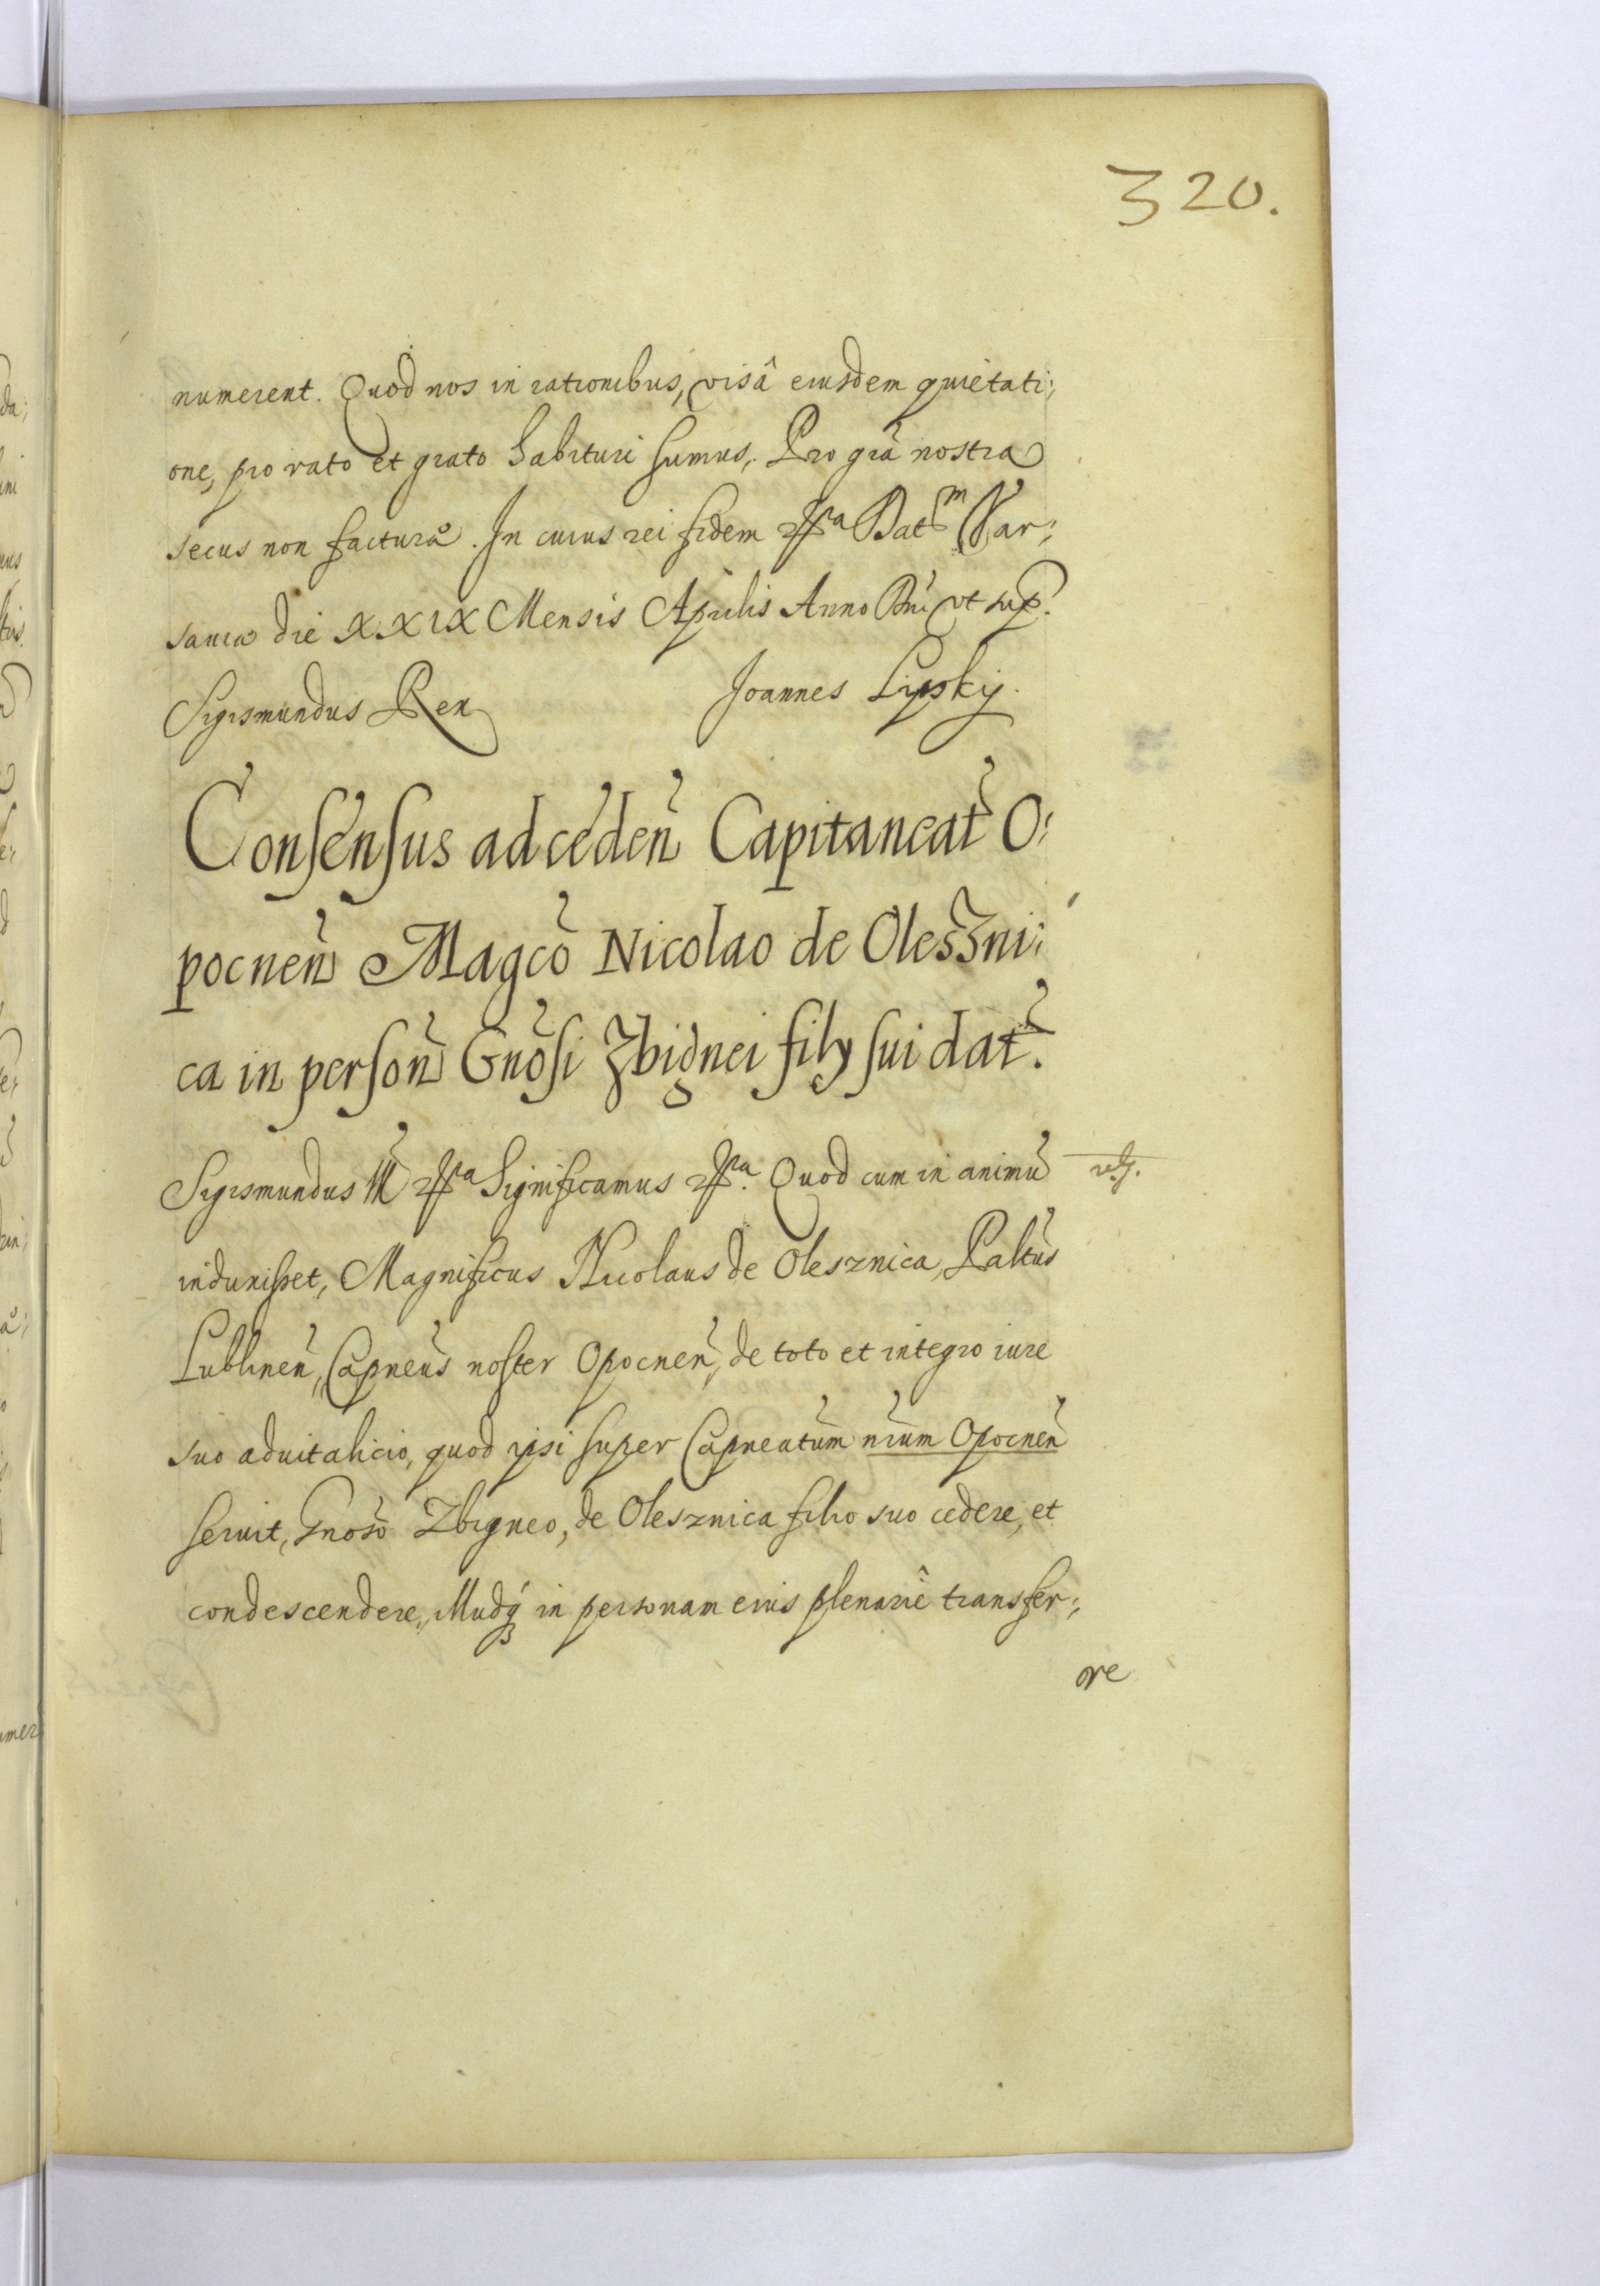 320.
numerent. Quod nos in rationibus, visâ eiusdem quietati:
one, pro rato et grato habituri sumus. Pro grã nostra
secus non factura. In cuius rei fidem Dat^m War:
sauiæ die XXIX Mensis Aprilis Anno Dni vt sup.
Sigismundus Rex
Joannes Lipskij.
Consensus ad ceden̄ Capitaneat̄ O:
pocnen̄ Magcō Nicolao de Oleszni:
ca in person̄ Gnōsi Zbignei filij sui dat̄.
Sigismundus III Significamus Quod cum in animū
induxisset, Magnificus Nicolaus de Olesznica, Paltūs
Lublinen̄, Capneūs noster Opocnen̄, de toto et integro iure
suo aduitalicio, quod ipsi super Capneatūm nr̄um Opocnen̄
seruit, Gnosō Zbigneo, de Olesznica filio suo cedere, et
condescendere, illudq́ in personam eius plenariè transfer:
re